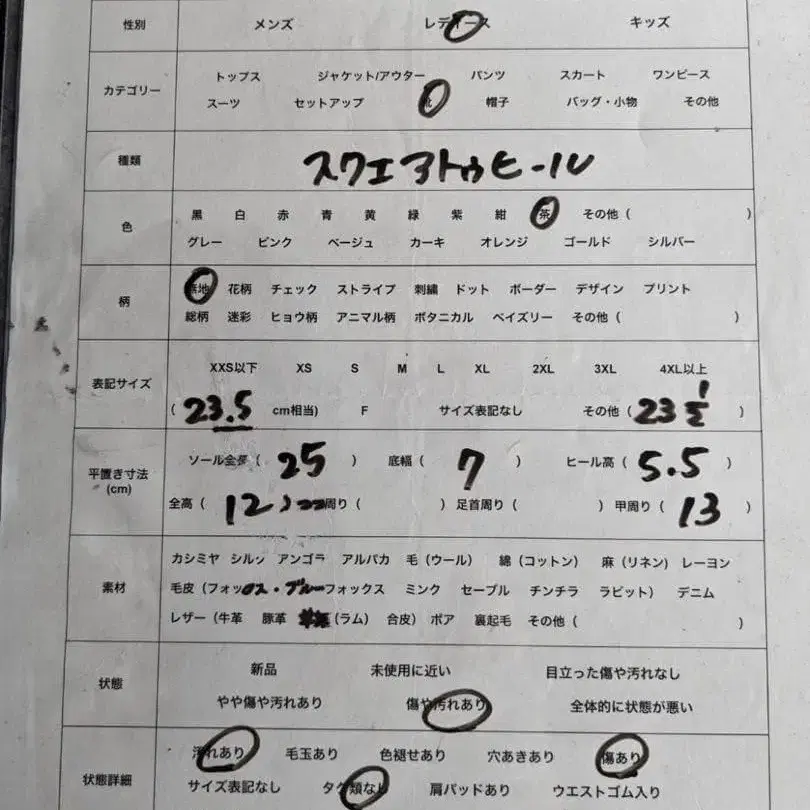 性別 メンズ レディース キッズ
カテゴリー
トップス ジャケット/アウター パンツ スカート ワンピース
スーツ セットアップ 靴 帽子 バッグ・小物 その他
種類 スクエアトゥヒール
色
黒 白 赤 青 黄 緑 紫 紺 茶 その他 ( )
グレー ピンク ベージュ カーキ オレンジ ゴールド シルバー
柄
無地 花柄 チェック ストライプ 刺繍 ドット ボーダー デザイン プリント
総柄 迷彩 ヒョウ柄 アニマル柄 ボタニカル ペイズリー その他 ( )
表記サイズ
XXS以下 XS S M L XL 2XL 3XL 4XL以上
( 23.5 cm相当) F サイズ表記なし その他 ( 23 1/2 )
平置き寸法
(cm)
ソール全長 ( 25 ) 底幅 ( 7 ) ヒール高 ( 5.5 )
全高 ( 12 ) 周り ( ) 足首周り ( ) 甲周り ( 13 )
素材
カシミヤ シルク アンゴラ アルパカ 毛 (ウール) 綿 (コットン) 麻 (リネン) レーヨン
毛皮 (フォックス・ブルーフォックス ミンク セーブル チンチラ ラビット) デニム
レザー (牛革 豚革 (ラム) 合皮) ボア 裏起毛 その他 ( )
状態
新品 未使用に近い 目立った傷や汚れなし
やや傷や汚れあり 傷や汚れあり 全体的に状態が悪い
状態詳細
汚れあり 毛玉あり 色褪せあり 穴あきあり 傷あり
サイズ表記なし タグ類なし 肩パッドあり ウエストゴム入り